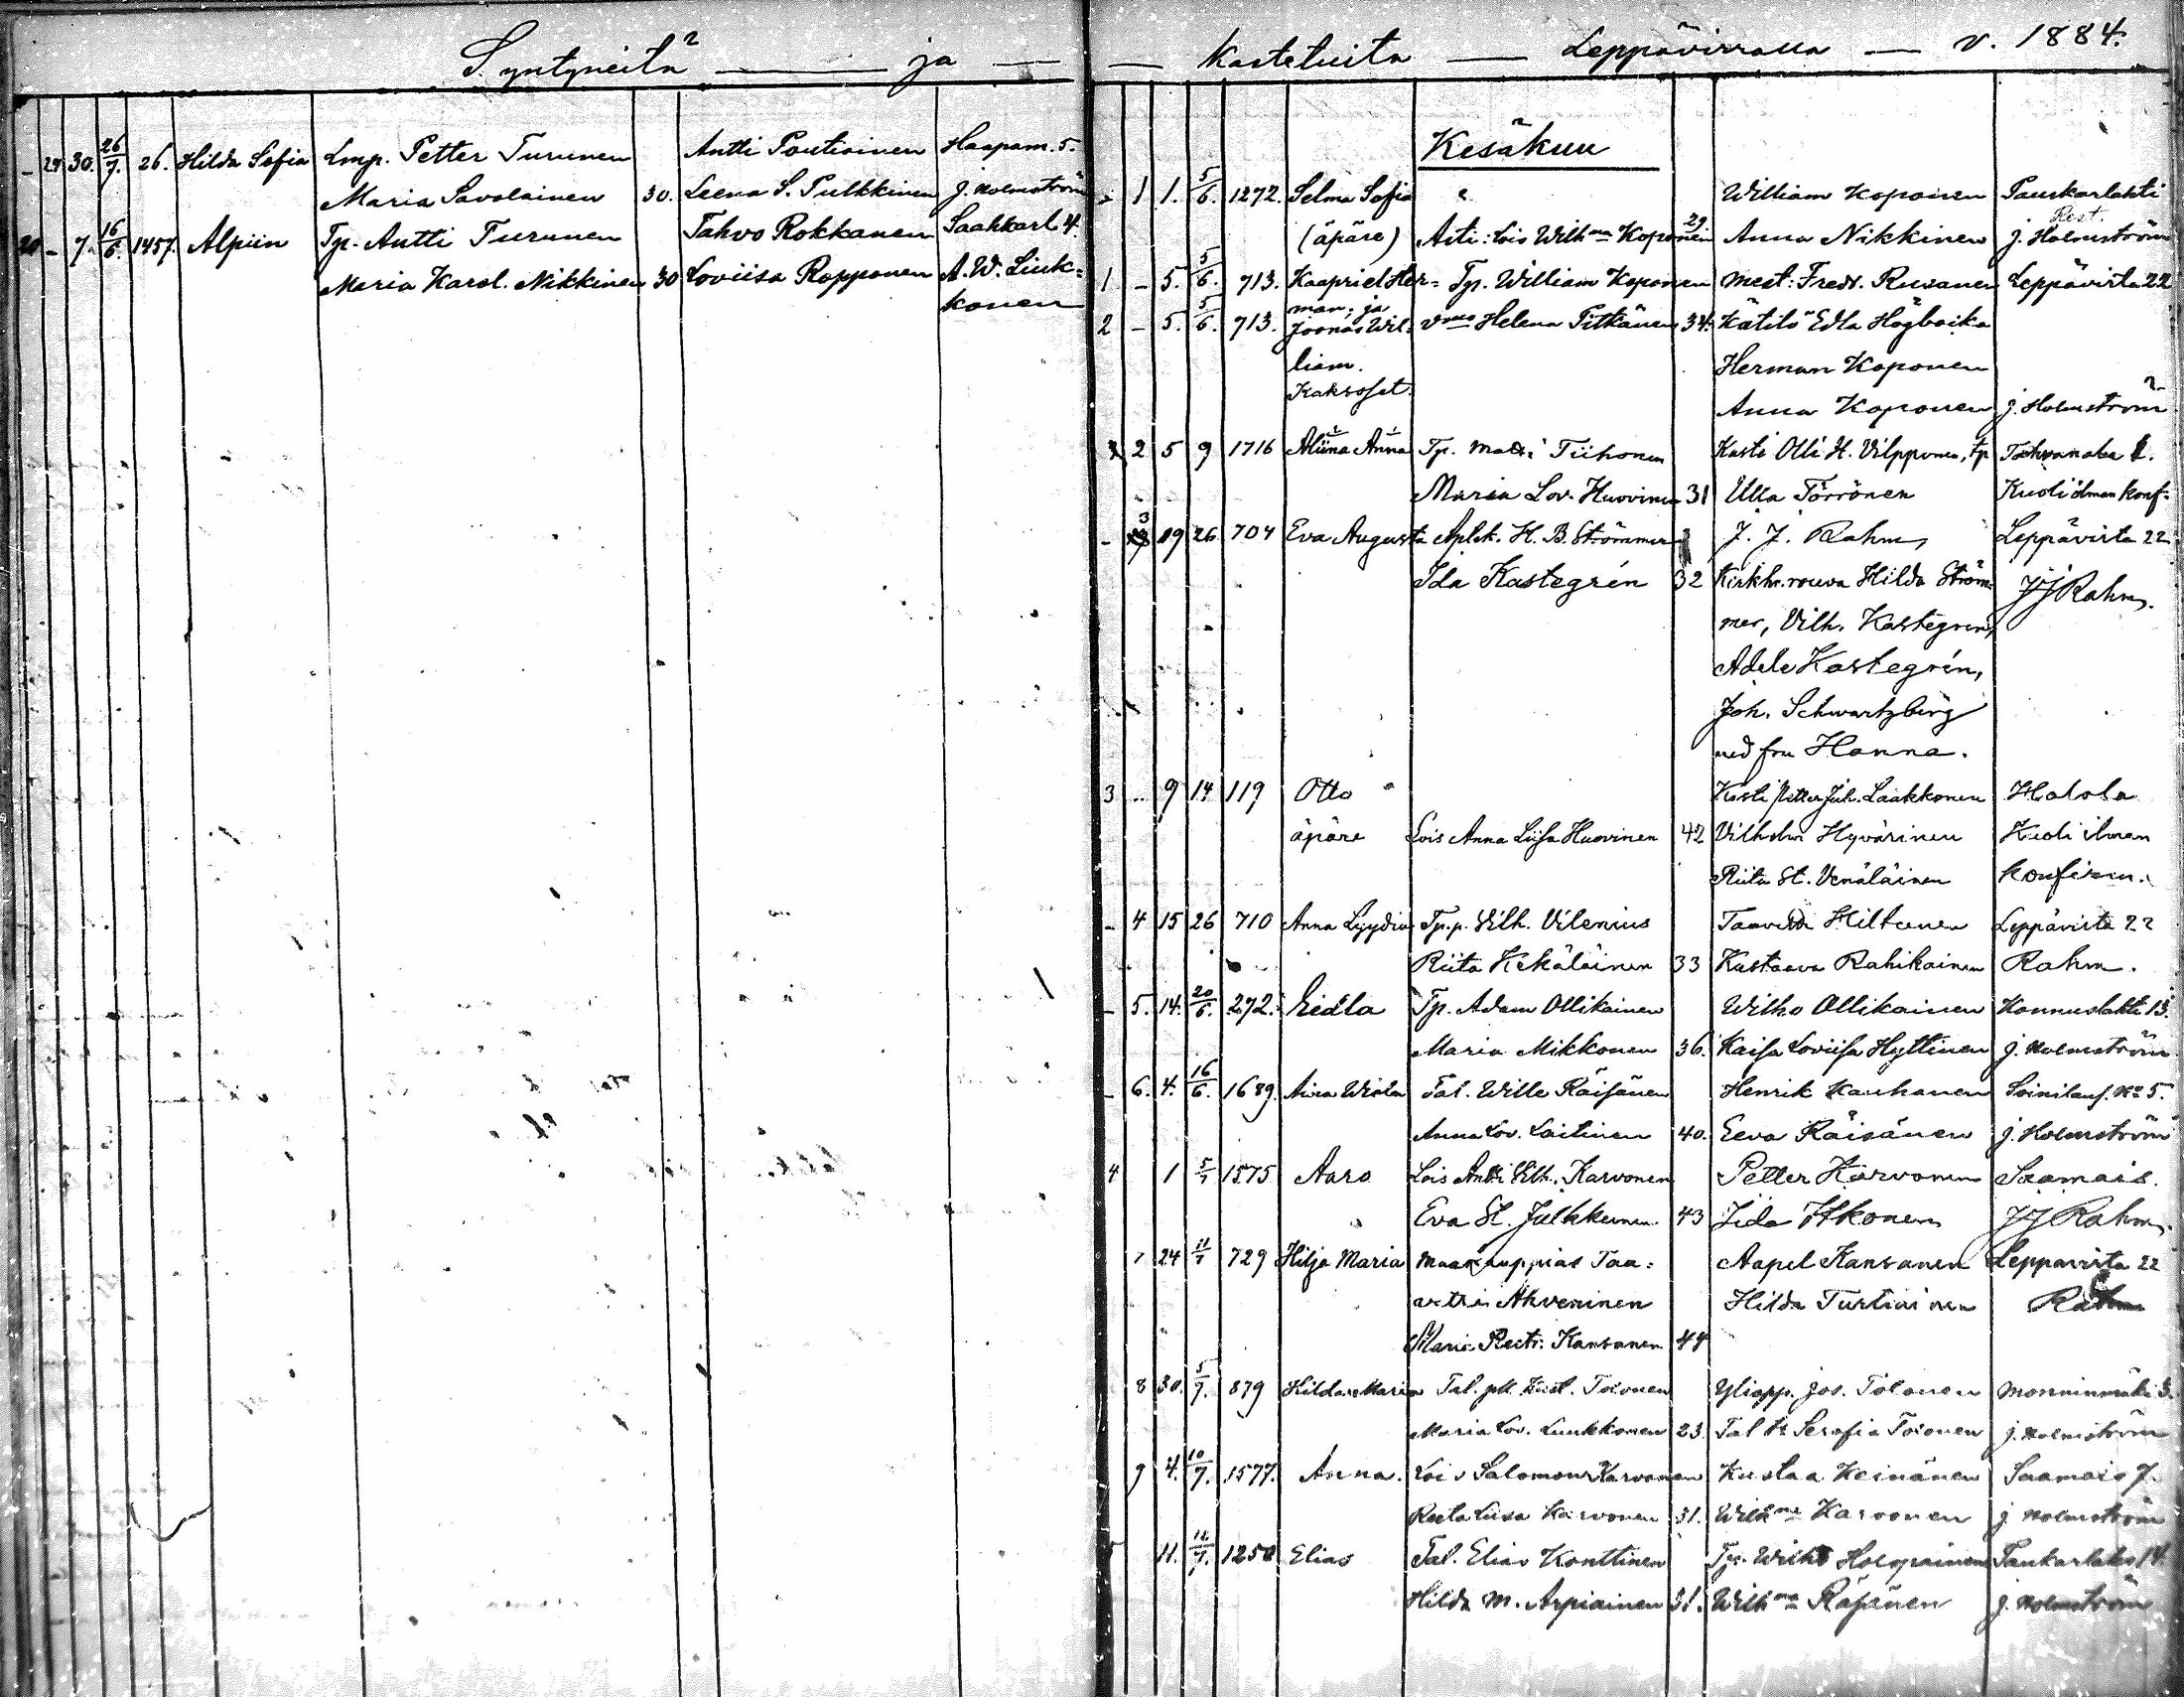 Syntyneitä — ja —
29 30. 26/7. 26. Hilda Sofia Lmp. Petter Turunen Antti Poutiainen Haapam. 5.
Maria Savolainen 30. Leena S. Pulkkinen J. Holmström
20 - 7. 16/6. 1457. Alpiin Tp. Antti Turunen Tahvo Rokkanen Saahkarl. 4.
Maria Karol. Nikkinen 30 Loviisa Ropponen A. W. Liuk=
konen
— Kastetuita — Leppävirralla — v. 1884.
Kesäkuu
1 1. 5/6. 1272. Selma Sofia William Koponen Paukarlahti
Rest.
(äpäre) Äiti: lois Wilhna Koponen 29 Anna Nikkinen J. Holmström
1 - 5. 5/6. 713. Kaapriel Her= Tp. William Koponen mest: Fredr. Rusanen Leppävirta 22
man, ja
2 - 5. 5/6. 713. Joonas Wil= vmo Helena Pitkänen 34. Kätilö Edla Högbacka
liam. Herman Koponen
Kaksoset. Anna Koponen J. Holmström
2 5 9 1716 Aliina Anna Tp. Matti Tiihonen Kasti Olli H. Vilpponen, tp
Maria Lov. Huovinen 31 Ulla Törrönen Kuoli ilman konf=
- 3 19 26 704 Eva Augusta Aptek. H. B. Strömmer J. J. Rahm, Leppävirta 22
Ida Kastegrén 32 Kirkh. rouva Hilda Ström= JJ Rahm.
mer, Vilh. Kastegren,
Adele Kastegrén,
Joh. Schwartzberg
med fru Hanna.
3 - 9 14 119 Otto Kasti Petter Juh. Laakkonen Halola
äpäre Lois Anna Liisa Huovinen 42 Vilhelm Hyvärinen Kuoli ilman
Riita St. Venäläinen konfirm.
- 4 15 26 710 Anna Lyydia Tp.p. Vilh. Vilenius Taavetti Hiltunen Leppävirta 22
Riita Kekäläinen 33 Kustaava Rahikainen Rahm.
- 5. 14. 20/6. 272. Eedla Tp. Adam Ollikainen Wilho Ollikainen Konnuslahti 13.
Maria Mikkonen 36. Kaisa Loviisa Hyttinen J. Holmström
- 6. 4. 16/6. 1689. Tal. Wille Räisänen Henrik Kauhanen Soinilans. No 5.
Anna Lov. Laitinen 40. Eeva Räisänen J. Holmström
4 1 5/7 1575 Aaro Lois Antti Vilh. Karvonen Petter Karvonen Saamais.
Eva St. Julkkunen 43 Iida Itkonen JJ Rahm.
7 24 11/7 729 Hilja Maria Maakauppias Taa= Aapel Kansanen Leppävirta 22
vetti Ahveninen Hilda Turtiainen Rahm
Maria Reeta Kansanen 44
8 30. 5/7. 879 Hilda Maria Tal. pk. Kust. Toivonen Yliopp. Jos. Tolonen Monninmäki 3.
Maria Lov. Luukkonen 23. Tal. tr Serafia Toivonen J. Holmström
9 4. 10/7. 1577. Anna. Lois Salomon Karvonen Kustaa Heinänen Saamais 7.
Reeta Liisa Karvonen 31. Wilhna Karvonen J. Holmström
5 11. 12/7. 1250 Elias Tal. Elias Konttinen Tp. Wilho Holopainen Paukarlaht. 14.
Hilda M. Arpiainen 31. Wilhna Räsänen J. Holmström